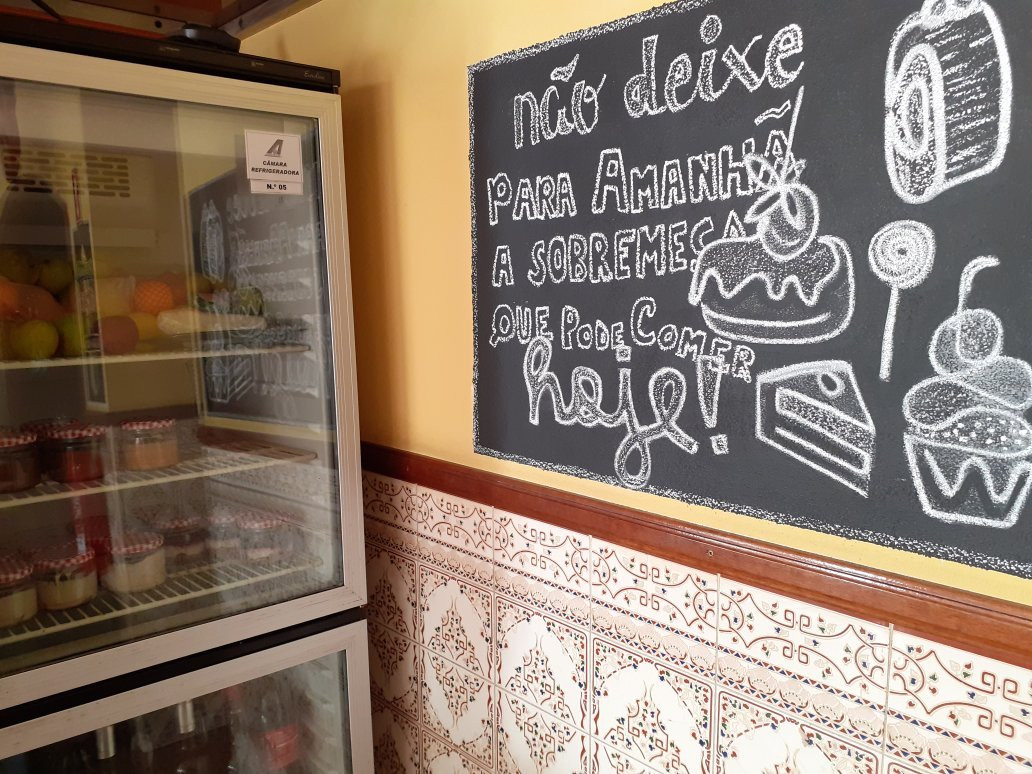 CÂMARA
REFRIGERADORA
N.º 05
não deixe
PARA AMANHÃ
A SOBREMEÇA
QUE PODE COMER
hoje!